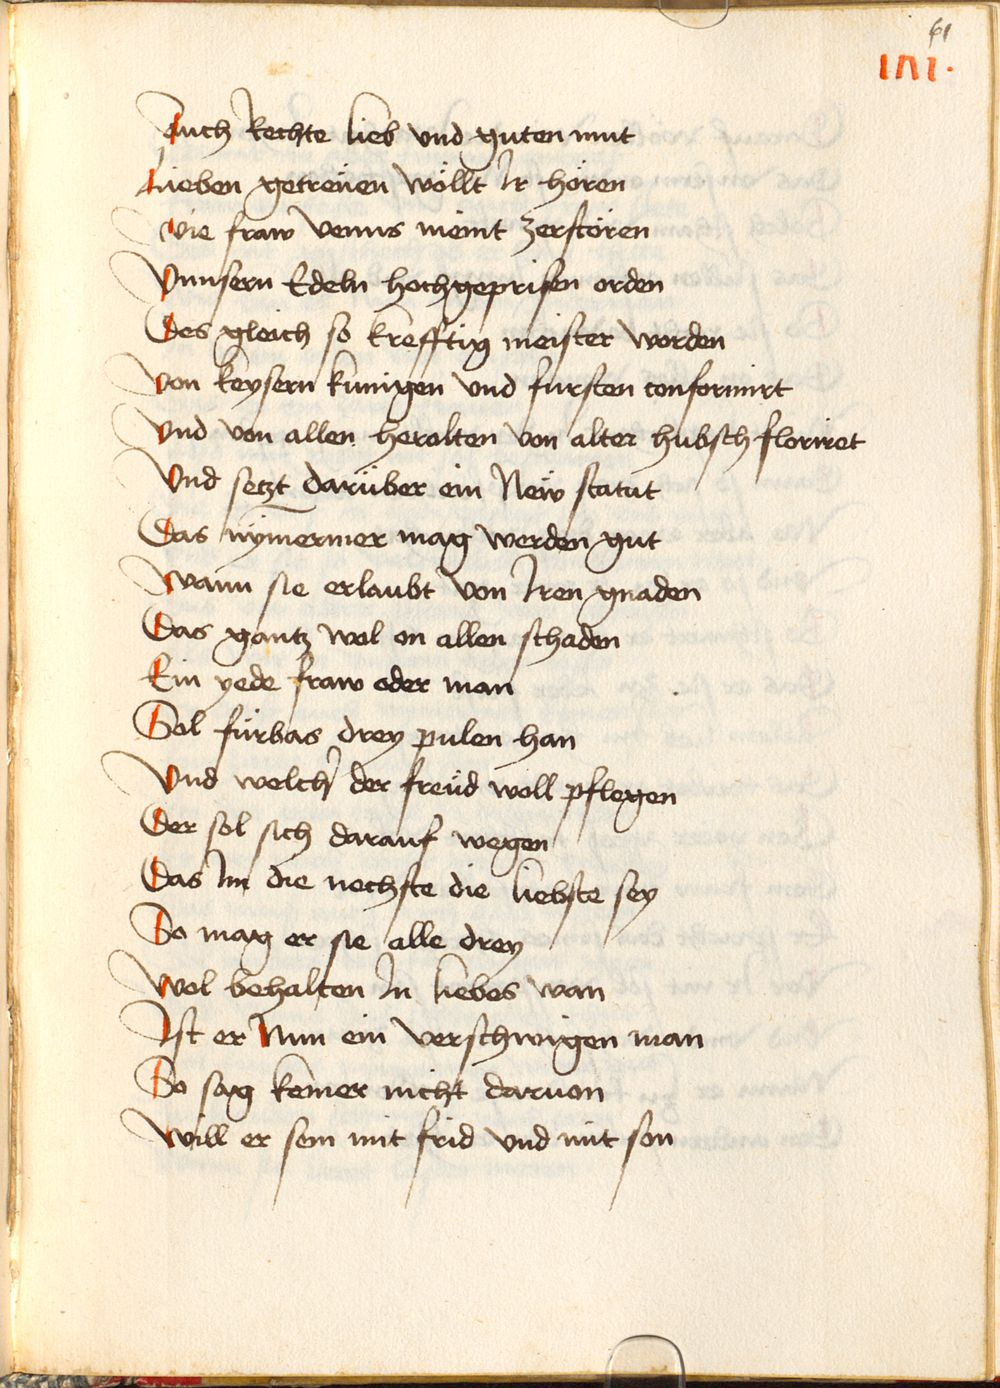 61
lni.
Auch Rechte lieb vnd guten mut
Lieben getreüen wöllt Ir hören
Wie fraw venus meint zerstören
Vnnsern Edeln hochgeprisen orden
Des gleich so krefftig meister worden
Von keysern kunigen vnd fursten conformirt
Vnd von allen herolten von alter hubsch floriret
Vnd setzt darüber ein New statut
Das nÿmermer mag werden gut
Wann sie erlaubt von Iren gnaden
Das gantz wol on allen schaden
Ein yede fraw oder man
Sol fürbas drey pulen han
Vnd welcher der freüd woll pflegen
Der sol sich darauf wegen
Das Im die nechste die liebste sey
So mag er sie alle drey
Wol behalten In liebes wan
Ist er Nun ein verschwigen man
So sag keiner nicht daruon
Will er sein mit frid vnd mit son